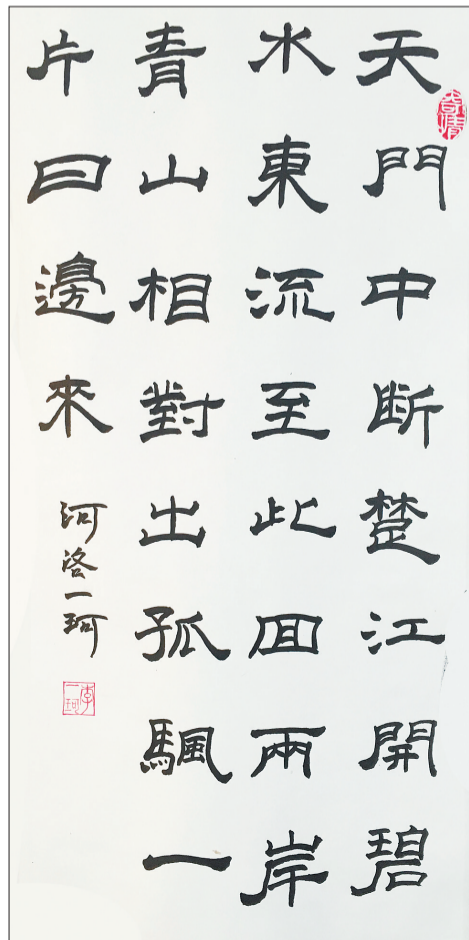 天門中断楚江開碧
水東流至此囬兩岸
青山相對出孤颿一
片日邊來
河洛一珂
李一珂